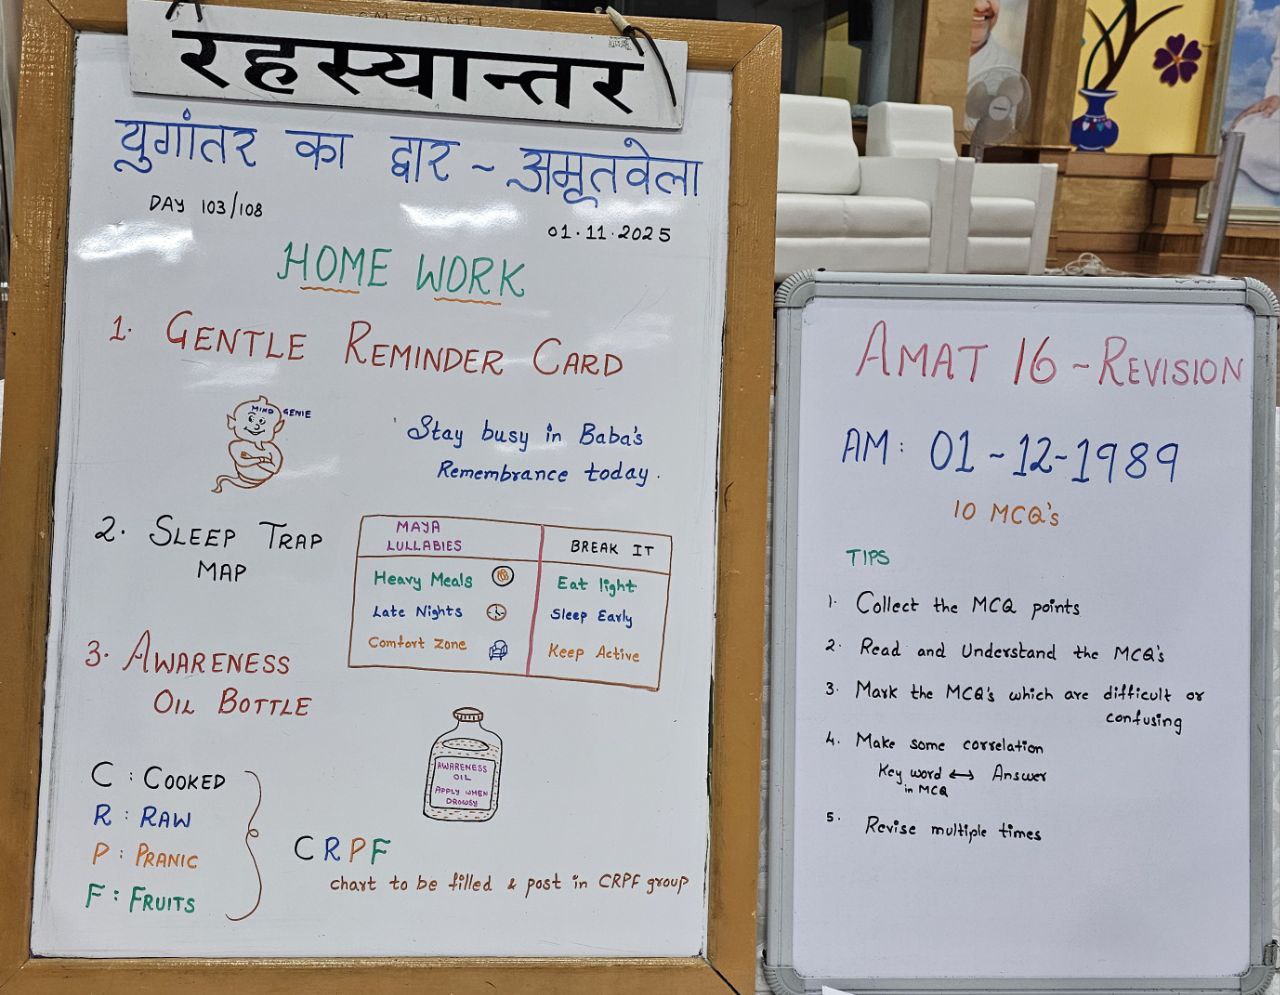 OM SHANTI
रहस्यान्तर
युगांतर का द्वार ~ अमृतवेला
DAY 103/108
01.11.2025
HOME WORK
1. GENTLE REMINDER CARD
MIND GENIE
Stay busy in Baba's
Remembrance today.
2. SLEEP TRAP
MAP
MAYA
LULLABIES
BREAK IT
Heavy Meals
Eat light
Late Nights
Sleep Early
Comfort Zone
Keep Active
3. AWARENESS
OIL BOTTLE
AWARENESS
OIL
APPLY WHEN
DROWSY
C : COOKED
R : RAW
P : PRANIC
F : FRUITS
CRPF
chart to be filled & post in CRPF group
AMAT 16 ~ REVISION
AM: 01-12-1989
10 MCQ's
TIPS
1. Collect the MCQ points
2. Read and Understand the MCQ's
3. Mark the MCQ's which are difficult or
confusing
4. Make some correlation
Key word ↔ Answer
in MCQ
5. Revise multiple times